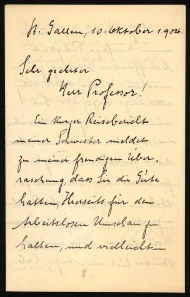 St. Gallen, 10. Oktober 1904.
Sehr geehrter
Herr Professor!
Ein kurzer Reisebericht
meiner Schwester meldet
zu meiner freudigen Über-
raschung, dass Sie die Güte
hatten, Ihrerseits für den
Arbeitslosen Umschau zu
halten, und vielleicht
8